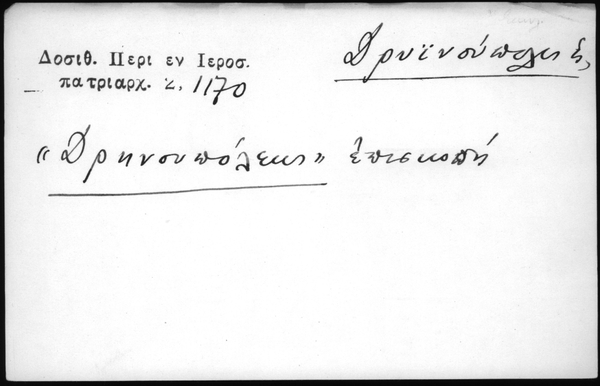 Δρυϊνούπολις ἡ,
Δοσιθ. Περι εν Ιεροσ.
πατριαρχ. 2, 1170
«Δρηνουπόλεως» ἐπισκοπή